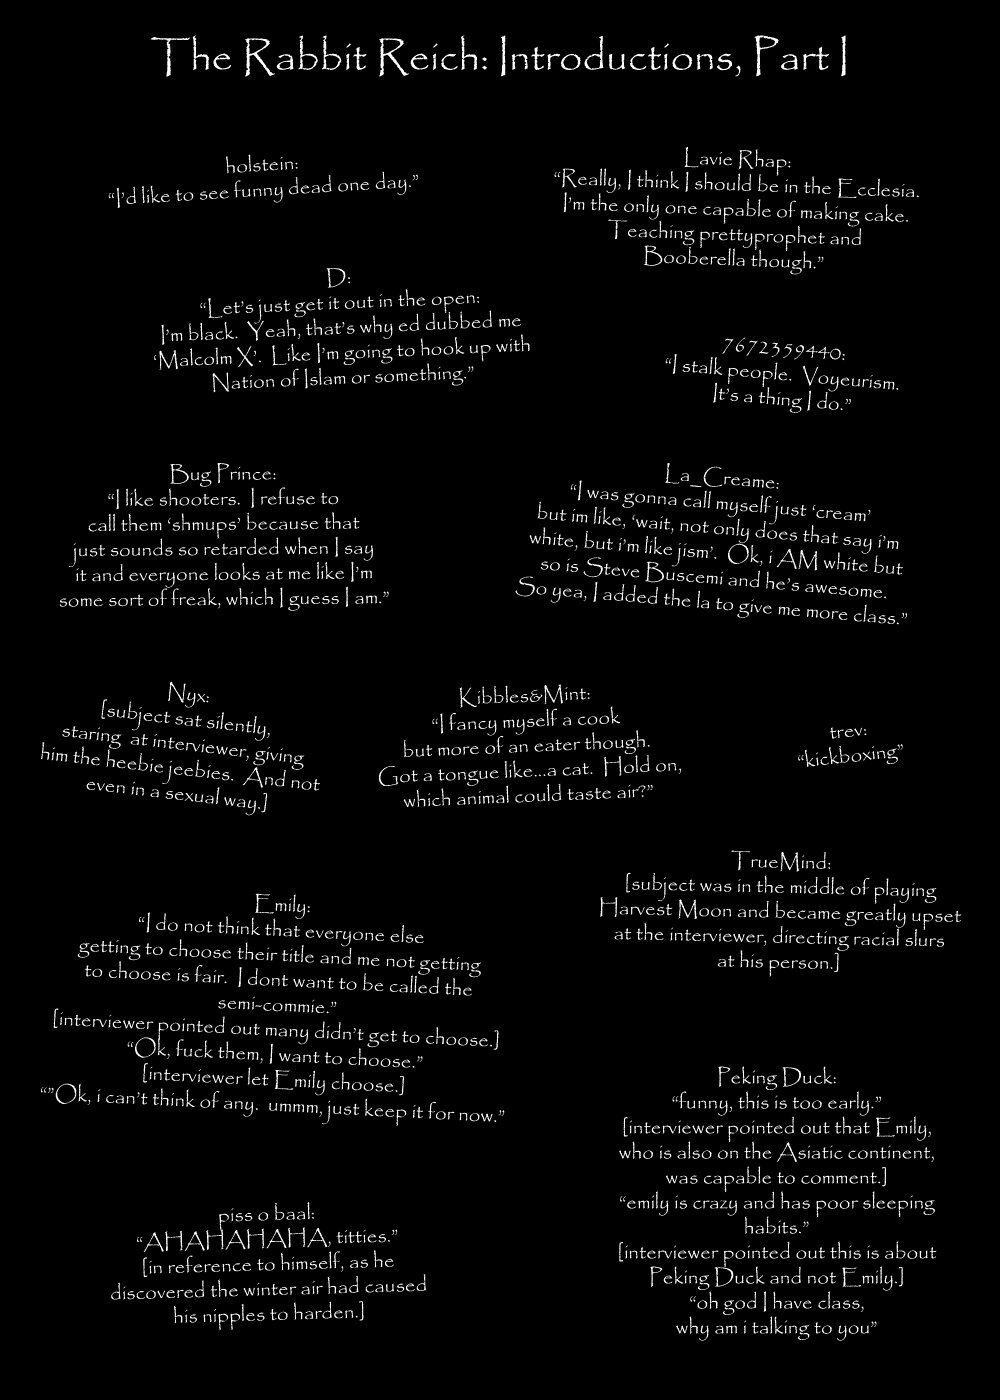 The Rabbit Reich: Introductions, Part I
holstein:
“I’d like to see funny dead one day.”
Lavie Rhap:
“Really, I think I should be in the Ecclesia.
I’m the only one capable of making cake.
Teaching prettyprophet and
Booberella though.”
D:
“Let’s just get it out in the open:
I’m black. Yeah, that’s why ed dubbed me
‘Malcolm X’. Like I’m going to hook up with
Nation of Islam or something.”
7672359440:
“I stalk people. Voyeurism.
It’s a thing I do.”
Bug Prince:
“I like shooters. I refuse to
call them ‘shmups’ because that
just sounds so retarded when I say
it and everyone looks at me like I’m
some sort of freak, which I guess I am.”
La_Creame:
“I was gonna call myself just ‘cream’
but im like, ‘wait, not only does that say i’m
white, but i’m like jism’. Ok, i AM white but
so is Steve Buscemi and he’s awesome.
So yea, I added the la to give me more class.”
Nyx:
[subject sat silently,
staring at interviewer, giving
him the heebie jeebies. And not
even in a sexual way.]
Kibbles&Mint:
“I fancy myself a cook
but more of an eater though.
Got a tongue like...a cat. Hold on,
which animal could taste air?”
trev:
“kickboxing”
TrueMind:
[subject was in the middle of playing
Harvest Moon and became greatly upset
at the interviewer, directing racial slurs
at his person.]
Emily:
“I do not think that everyone else
getting to choose their title and me not getting
to choose is fair. I dont want to be called the
semi-commie.”
[interviewer pointed out many didn’t get to choose.]
“Ok, fuck them, I want to choose.”
[interviewer let Emily choose.]
“”Ok, i can’t think of any. ummm, just keep it for now.”
Peking Duck:
“funny, this is too early.”
[interviewer pointed out that Emily,
who is also on the Asiatic continent,
was capable to comment.]
“emily is crazy and has poor sleeping
habits.”
[interviewer pointed out this is about
Peking Duck and not Emily.]
“oh god I have class,
why am i talking to you”
piss o baal:
“AHAHAHAHA, titties.”
[in reference to himself, as he
discovered the winter air had caused
his nipples to harden.]